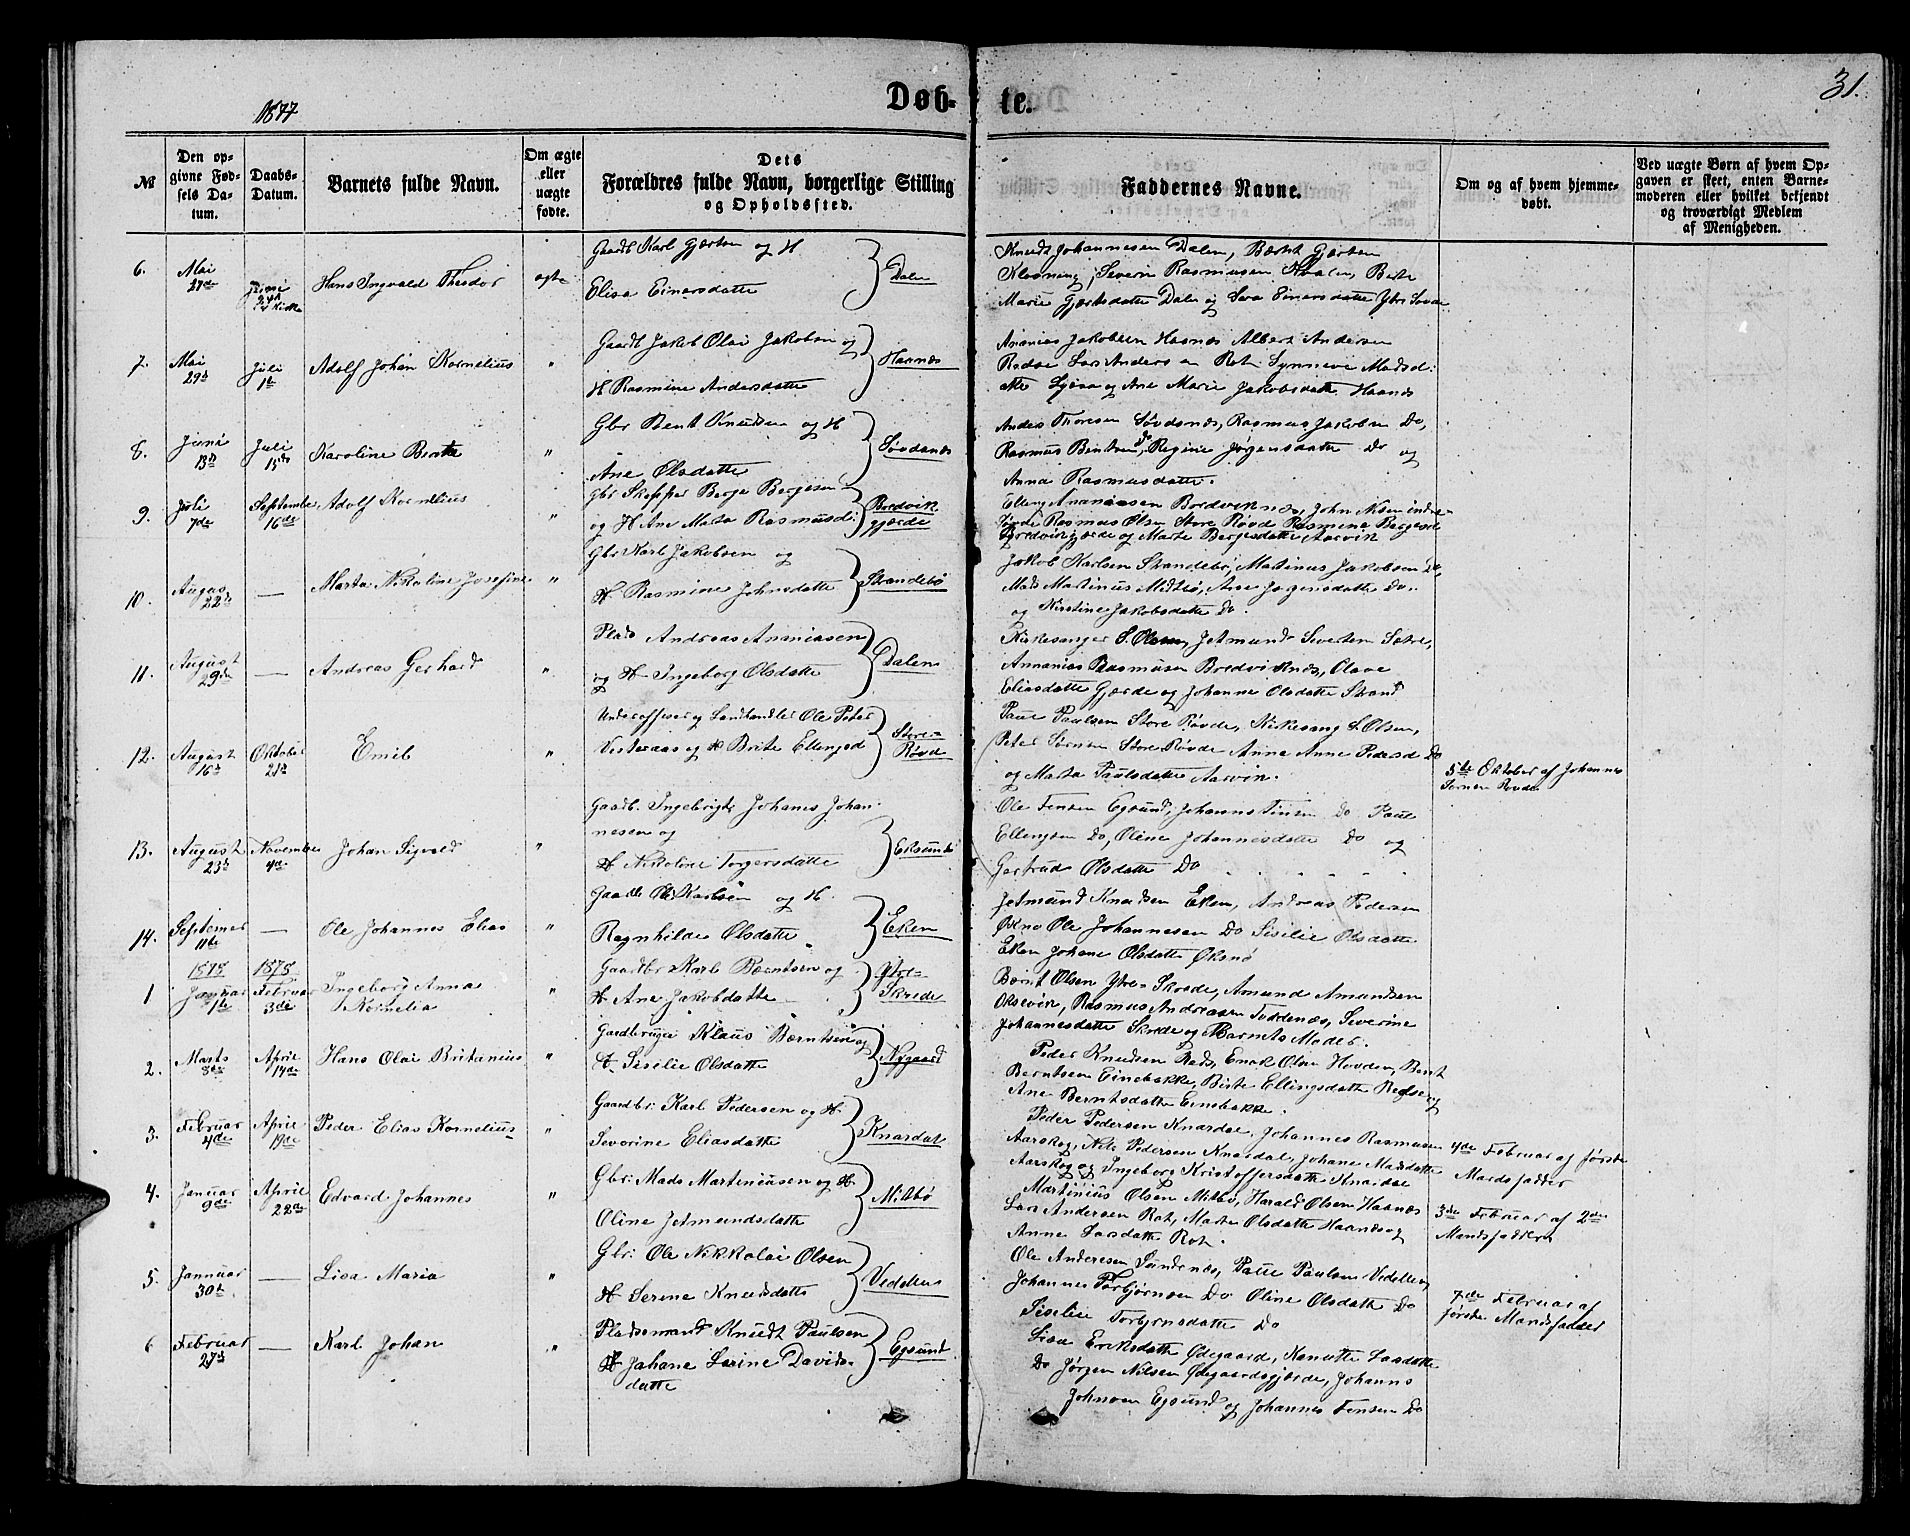 31.
1877
Døb- te.
№
Den op-
givne Fød-
sels Da-
tum.
Daabs-
Datum.
Barnets fulde Navn.
Om ægte
eller
uægte
fødte.
Dets
Forældres fulde Navn, borgerlige Stilling
og Opholdssted.
Faddernes Navne.
Om og af hvem hjemme-
døbt.
Ved uægte Børn af hvem Op-
gaven er skeet, enten Barne-
moderen eller hvilket bekjendt
og troværdigt Medlem
af Menigheden.
6.
Mai
27de
Juni
24d
i Kirke
Hans Ingvald Theodor
ægte
Gaardb Karl Gjærtsen og H
Elisa Einarsdatte
Dalen
Knudt Johannesen Dalen, Bærtil Gjærtsen
Klovning, Severin Rasmusen Hvalen, Berte
Marie Gjærtsdatte Dalen og Sera Einarsdatte Ytre
7.
Mai
29d
Juli
1te
Adolf Johan Kornelius
"
Gaardb Jakob Olai Jakobsen og
H Rasmine Andersdatte
Haanæs
Ananias Jakobsen Haanæs Albert Andersen
Rødsæ Lars Andersen Rot Synneve Madsd:
atte og Ane Marie Jakobsdatte Haanæs
8.
Juni
13d
Juli
15de
Karoline Berte
"
Gbr Bent Knudsen og H
Ane Olsdatte
Søvdsnæs
Anders Thoresen Søvdsnæs, Rasmus Jakobsen Do,
Rasmus Bentsen Do, Regine Jørgensdatte Do og
Anna Rasmusdatte.
9.
Juli
7de
September
16de
Adolf Kornelius
"
Gbr Skipper Berge Bergesen
og H Ane Marta Rasmusd:
Bredvik
gjærde
Elling Ananiassen Bredviknæs, John Nilsen indre-
Rasmus Olsen Store Røvde Rasmine Bergesd:
Bredvikgjærde og Marte Bergesdatte Aarvik
10.
August
22d
—
Marta Nikoline Josefine
"
Gbr Karl Jakobsen og
H. Rasmine Johnsdatte
Strandebø
Jakob Karlsen Strandebø, Martinus Jakobsen Do,
Mads Martinus Midtbø, Ane Jørgensdatte Do.
og Kirstine Jakobsdatte Do.
11.
August
29de
—
Andreas Gerhard
"
Plads Andreas Ananiasen
og H Ingeborg Olsdatte
Dalen
Kirkesanger S. Olsen, Jetmund Sivertsen Sætre,
Annanias Rasmusen Bredviknæs, Olave
Eliasdatte Gjærde og Johanne Olsdatte Strand
12.
August
16d
Oktober
21d
Emil
"
Underofficer og Landhandler Ole Peter
Vesteraas og H Brite Ellingsd
Store-
Røvde
Paul Paulsen Store Røvde, Kirkesang S. Olsen,
Peter Sørnsen Store Røvde Anna Anne Pedersd Do
og Marta Paulsdatte Aarvik.
5te Oktober af Johannes
Sørnsen Røvde
13.
August
23d
November
4de
Johan Sigvald
"
Gaardb. Ingebrigt Johanes Johan-
nesen og
H Nikoline Torgersdatte
Eksund
Ole Jensen Egsund, Johannes Jensen Do Paul
Ellingsen Do, Oline Johannesdatte Do og
Gertrud Olsdatte Do
14.
September
11te
—
Ole Johannes Elias
"
Gaardb Ole Karlsen og H.
Ragnhilde Olsdatte
Eken
Jetmund Knudsen Eken, Andreas Pedersen
Øksno Ole Johannesen Do Sisilie Olsdatte
Eken Johane Olsdatte Øksnø
1
1878
Januar
1te
1878
Februar
3de
Ingeborg Anna
Kornelia
"
Gaardbr Karl Berntsen og
H Ane Jakobdatte
Ytre-
Skrede
Bernt Olsen Ytre-Skrede, Amund Amundsen
Oksevik, Rasmus Andreasen Toddenæs, Severine
Johannesdatte Skrede og Barnets Moder.
2.
Marts
8de
April
14de
Hans Olai Britanius
"
Gaardbruger Klaus Berntsen og
H. Sisilie Olsdatte
Nygaard
Peder Knudsen Rads, Enok Olsen Hovden, Bernt
Berntsen Einebakke, Birte Ellingsdatte og
Ane Berntsdatte Einebakke.
3.
Februar
4de
April
19de
Peder Elias Kornelius
"
Gaardbr. Karl Pedersen og H.
Severine Eliasdatte
Knardal
Peder Pedersen Knardal, Johannes Rasmusen
Aarskog, Nils Pedersen Knardal, Johane Madsdatte
Aarskog og Ingeborg Kristoffersdatte Knardal
4de Februar af første
Mandsfadder
4.
Januar
9de
April
22de
Edvard Johannes
"
Gbr. Mads Martiniussen og H.
Oline Jetmundsdatte
Mitbø
Martinius Olsen Mitbø, Harald Olsen Haanæs
Lars Andersen Rot, Marte Olsdatte Haanæs og
Anne Larsdatte Rot.
3de Februar af 2den
Mandsfaddern
5.
Januar
30te
—
Lisa Maria
"
Gbr: Ole Nikkolai Olsen
H Serine Knudsdatte
Vedelden
Ole Andersen Sundenæs, Paul Paulsen Vedelden,
Johannes Torbjørnsen Do Oline Olsdatte Do
Siselie Torbjrnsdatte Do
7de Februar af
første Mandsfadder
6
Februar
27de
—
Karl Johan
"
Pladsemand Knudt Paulsen
H Jahane Larine Davids-
datte
Egsund
Lisa Eriksdatte Ødegaard, Hanutte Larsdatte
Do Jørgen Nilsen Ødegaardsgjærde, Johanns
Johnsen Egsund og Johannes Jensen Do